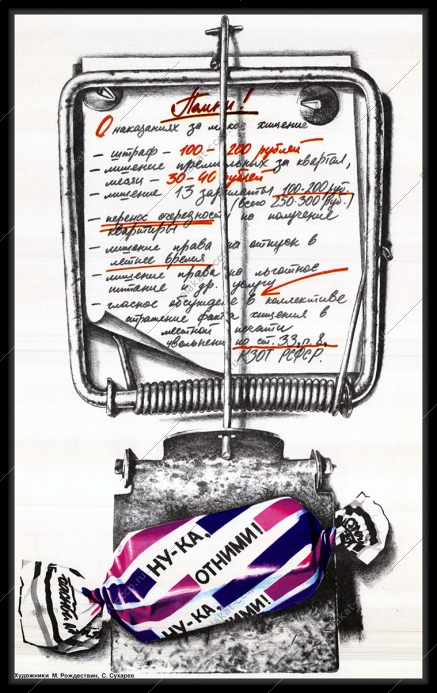 Помни!
О наказаниях за мелкое хищение
– штраф – 100 – 200 рублей
– лишение премиальных за квартал,
месяц – 30-40 рублей
– лишение 13 зарплаты 100-200 руб.
(всего 250-300 руб.)
– перенос очередности на получение
квартиры
– лишение права на отпуск в
летнее время
– лишение права на льготное
питание и др. услуги
– гласное обсуждение в коллективе
отражение факта хищения в
местной печати
увольнение по ст. 33, п. 8,
КЗОТ РСФСР.
НУ-КА,
ОТНИМИ!
НУ-КА,
ОТНИМИ!
Художники М. Рождествин, С. Сухарев